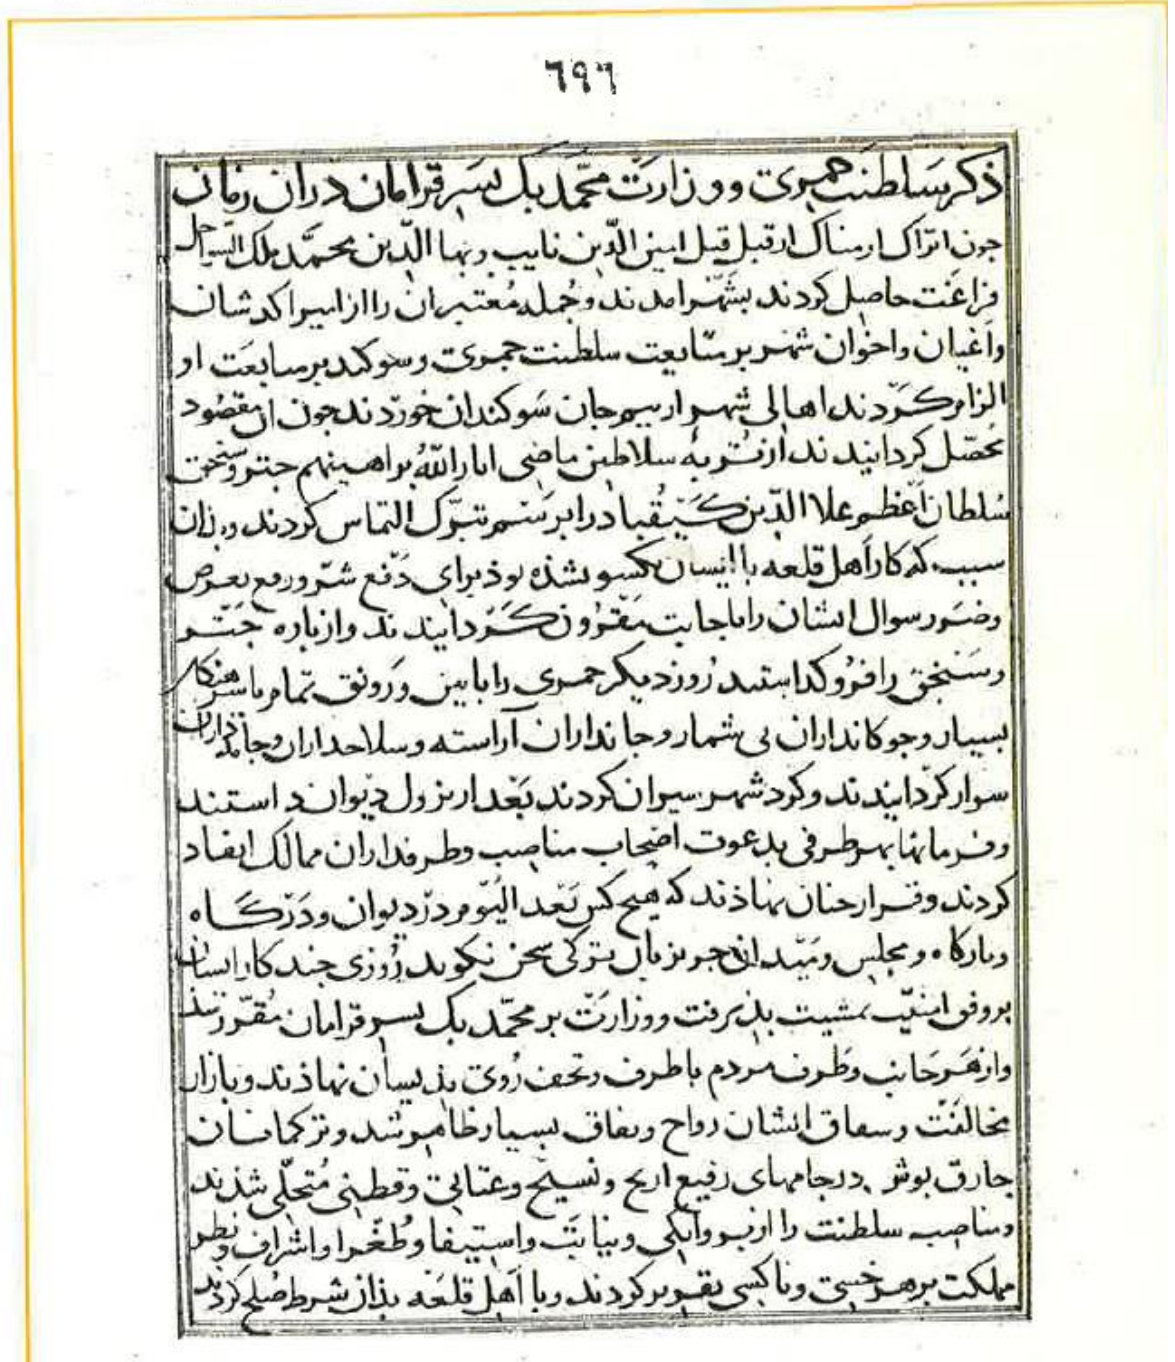 ٦٩٦
ذکر سلطنت جمری و وزارت محمد بک بسر قرامان دران زمان
جون اتراک ارمناک از قبل قبل امین الدین نایب و بها الدین محمد ملک السواحل
فراغت حاصل کردند بشهر امدند و جمله معتبران را از امیر اکدشان
واعیان واخوان شهر بر متابعت سلطنت جمری وسوکند بر مبایعت او
الزام کردند اهالی شهر از بیم جان سوکندان خوردند جون ان مقصود
محصل کردانیدند از تربه سلاطین ماضی انار الله براهینهم جتر وسنجق
سلطان اعظم علا الدین کیقباد را بر سم تبرک التماس کردند و بذان
سبب که کار اهل قلعه با ایشان یکسو نشده بوذ برای دفع شر و رفع تعرض
وضرر سوال ایشان را باجابت مقرون کردانیدند وازباره جتر
وسنجق را فرو کداستند روز دیکر جمری را بایین و رونق تمام با سرهنکان
بسیار وجوکانداران بی شمار وجانداران آراسته وسلاحداران وجامه داران
سوار کردانیدند وکرد شهر سیران کردند بعد از نزول دیوان داستند
وفرمانها بهر طرفی بدعوت اصحاب مناصب وطرفداران ممالک انفاد
کردند وقرار جنان نهاذند که هیج کس بعد الیوم در دیوان ودرکاه
وبارکاه و مجلس ومیدان جز بزبان ترکی سخن نکوید روزی جند کار ایشان
بروفق امنیت تمشیت بذیرفت ووزارت بر محمد بک بسر قرامان مقرر شد
واز هر جانب وطرف مردم باطرف وتحف روی بذیشان نهاذند وبازار
مخالفت وشقاق ایشان رواح ونفاق بسیار ظاهر شد وترکمانان
جارق بوش درجامهای رفیع از نخ ونسیج وعتابی وقطنی متحلی شذند
ومناصب سلطنت را از بروانکی ونیابت واستیفا وطغرا واشراف ونظر
مملکت بر هر خسی وناکسی تقریر کردند وبا اهل قلعه بذان شرط صلح کردند